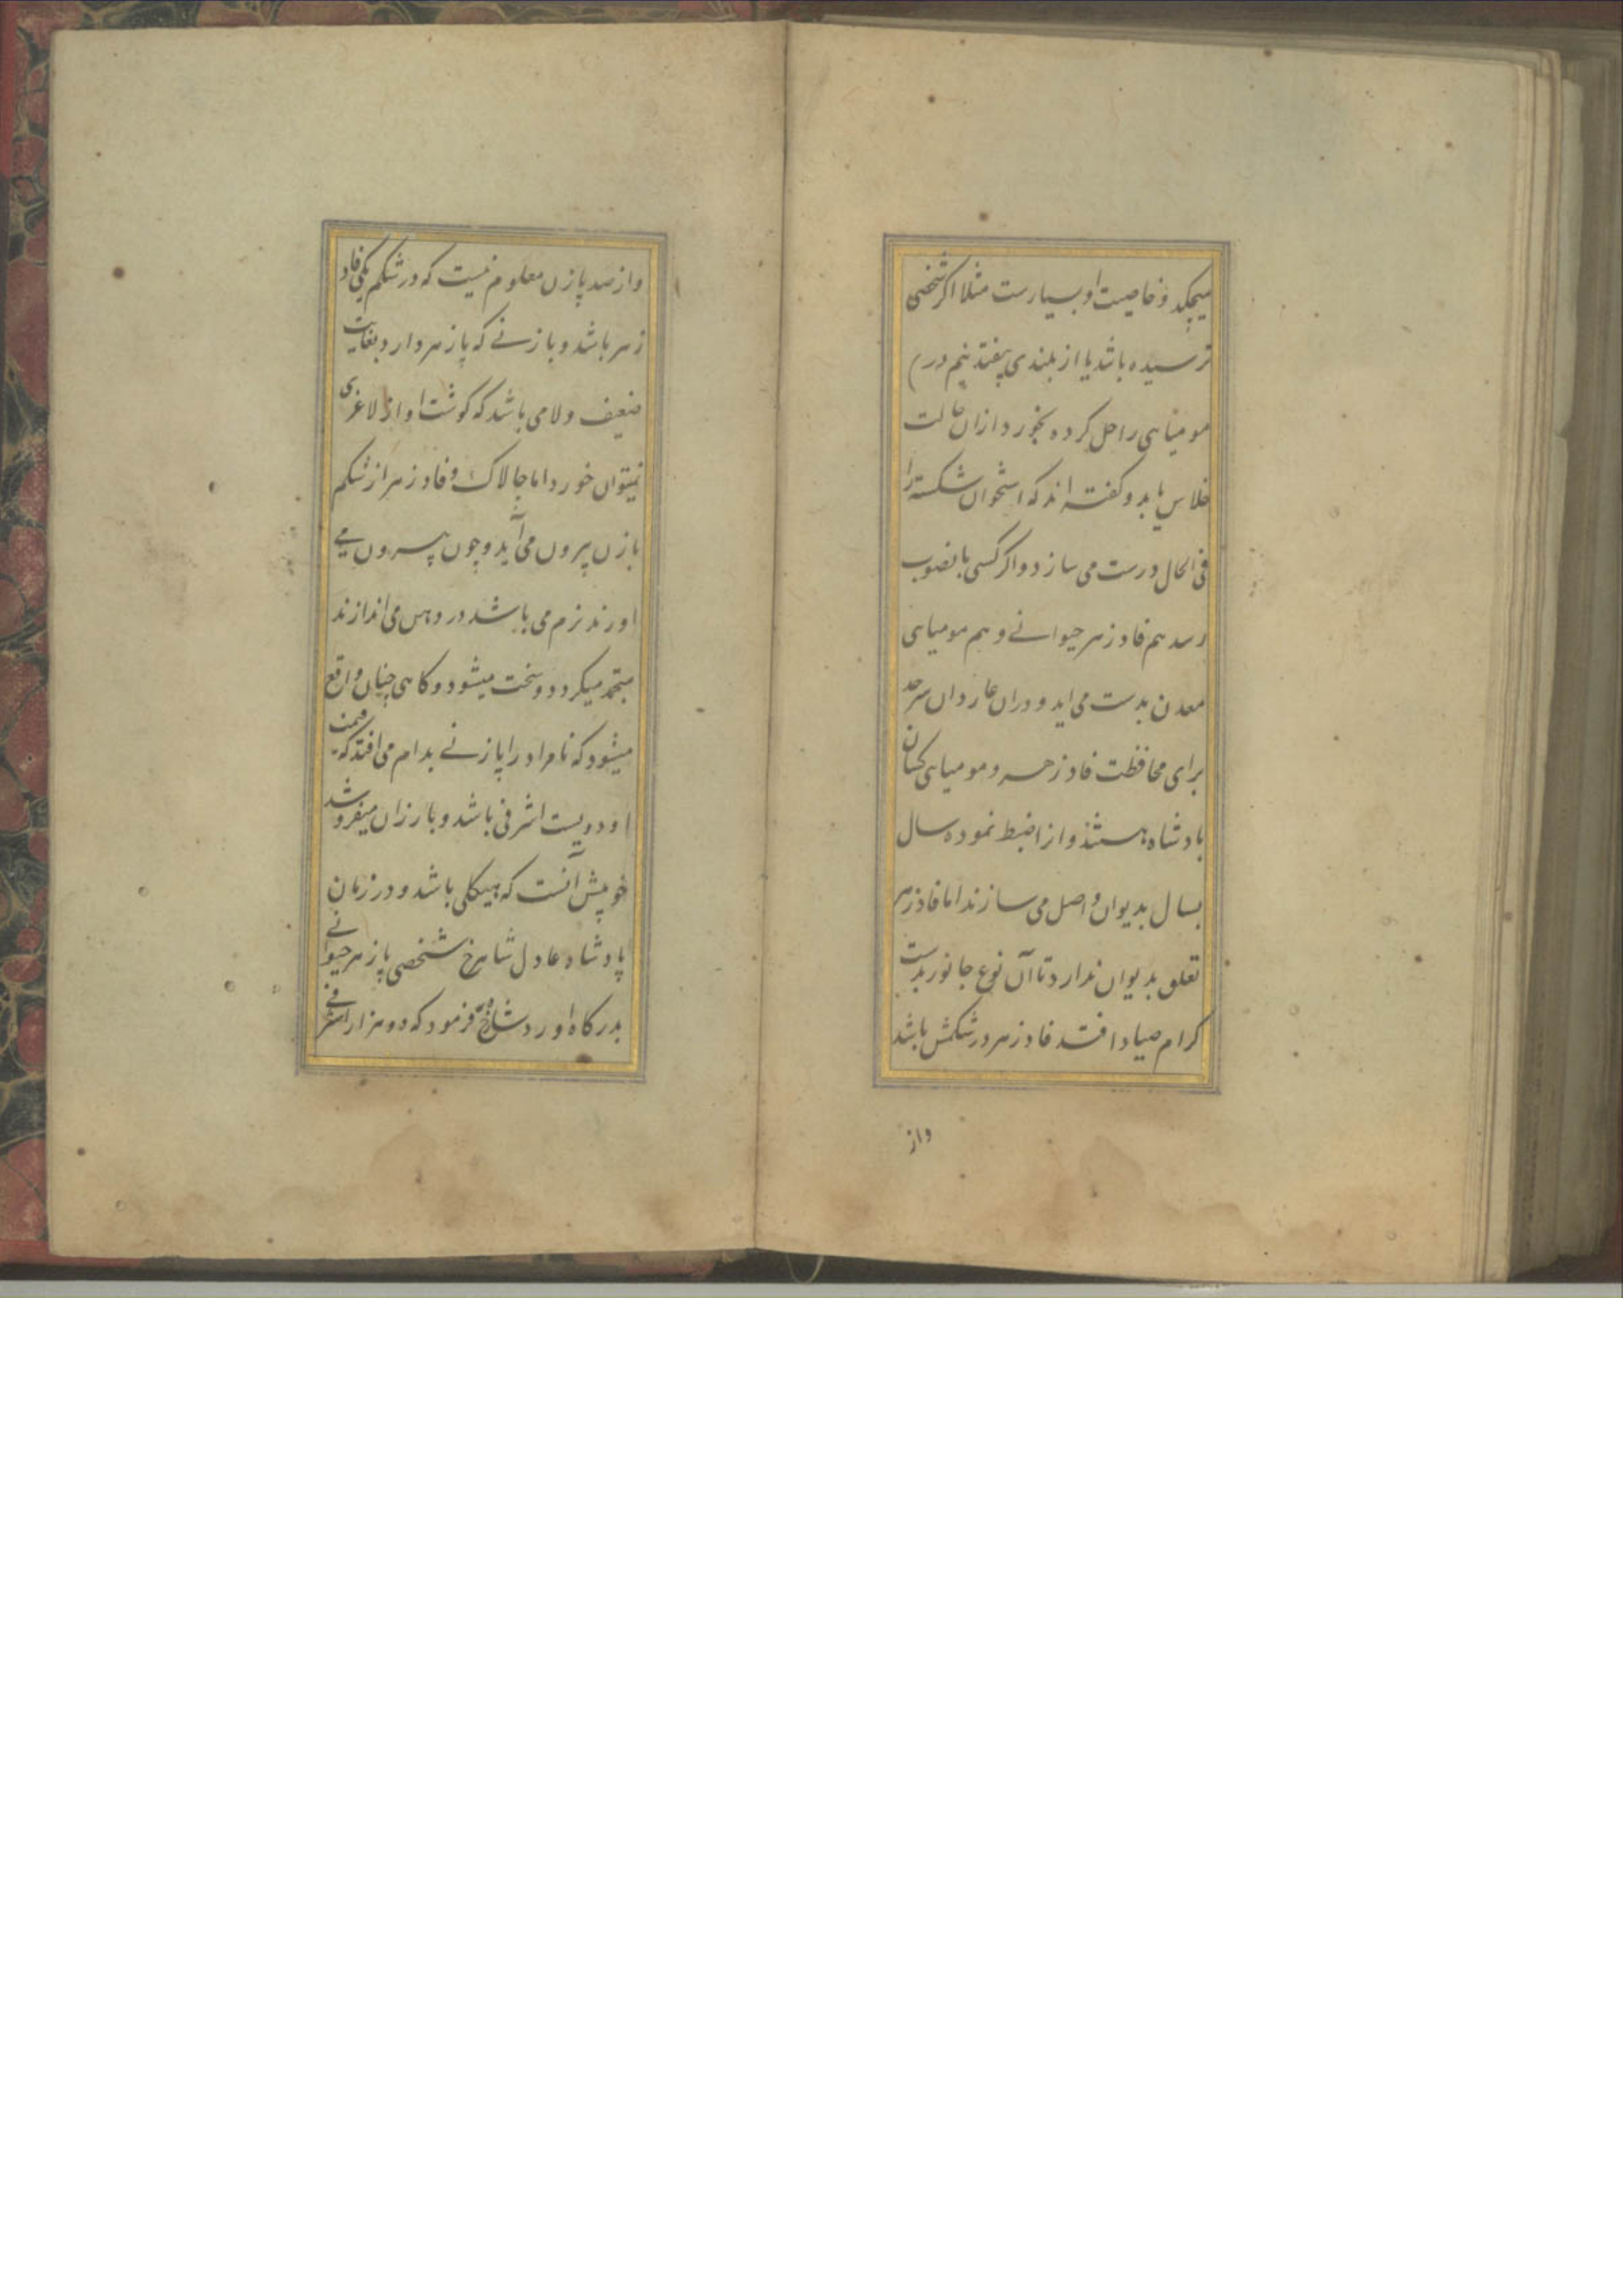 میچکد و خاصیت او بسیارست مثلا اکر شخصی
ترسیده باشد یا از بلندی بیفتد نیم درم
مومیاهی را حل کرده بخورد ازان حالت
خلاص یابد و کفته اند که استخوان شکسته را
فی الحال درست می سازد و اکر کسی بانصوب
رسد هم فادزهر حیوانے و هم مومیاهی
معدن بدست می اید و دران سرحد
برای محافظت فادزهر و مومیاهی کسان
بادشاه هستند و از انضبط نموده سال
بسال بدیوان واصل می سازند اما فادزهر
تعلق بدیوان ندارد تا آن نوع جانور بدست
کرام صیاد افتد فادزهر در شکمش باشد
واز
واز صد پازن معلوم نیست که در شکم یکی فاد
زهر باشد و بازنے که پازهر دارد بغایت
ضعیف و لا می باشد که کوشت او از لاغری
نمیتوان خورد اما جالاک و فادزهر از شکم
بازن بیرون می آید و چون بیرون مے
اورند نرم می باشد در دهن می اندازند
متجمد میکردد و سخت میشود و کاهی چنان واقع
میشود که نامراد را پازنے بدام می افتد که قیمت
او دویست اشرفی باشد و بارزان میفروشد
خوبیش آنست که هیکلی باشد و در زمان
پادشاه عادل شاهرخ شخصی پازهر حیوانے
بدرکاه اورد شاهرخ فرمود که دو هزار اشرفے